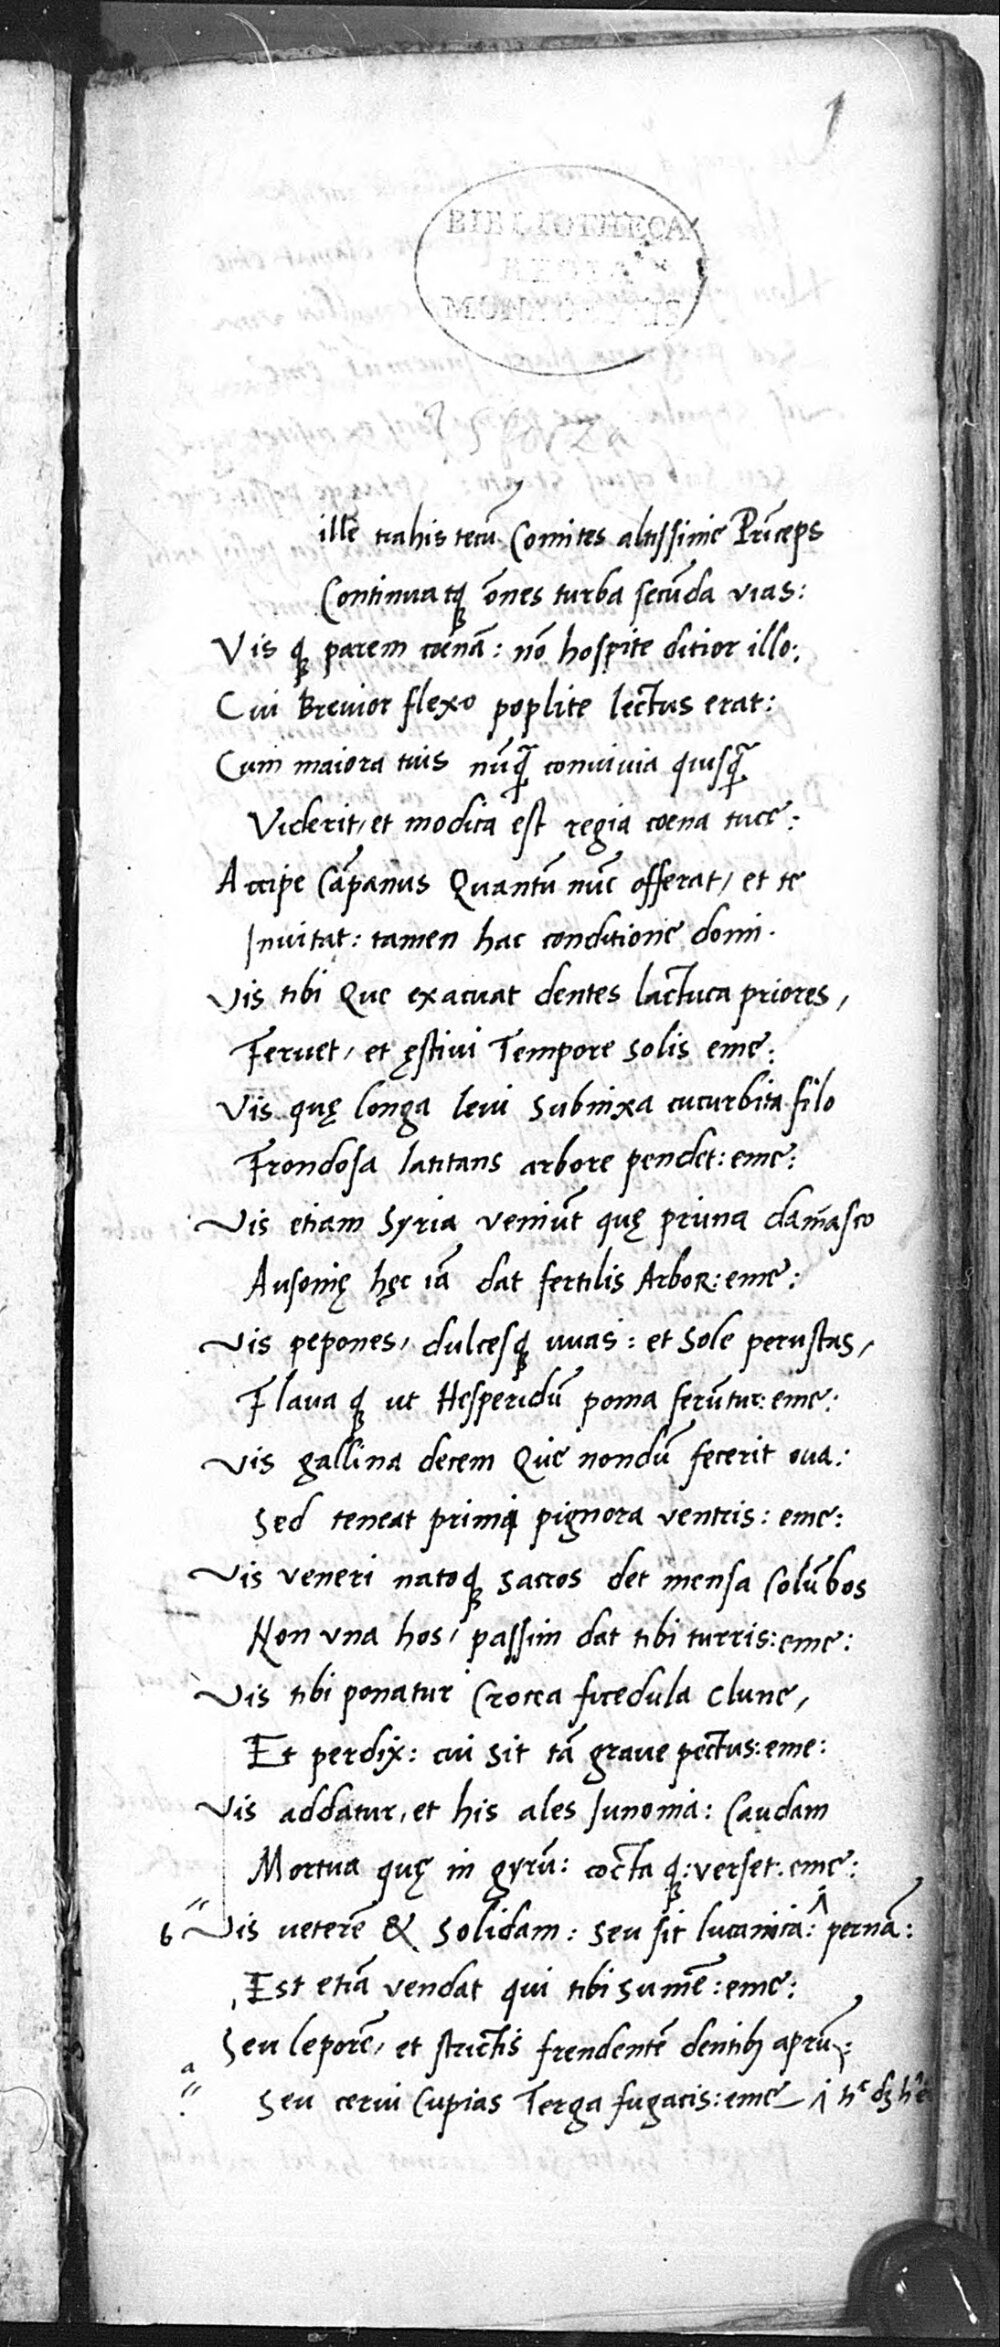 1
BIBLIOTHECA
REGIA
MONACENSIS
ille trahis tecū Comites altissime Prīceps
Continuatq̨ ōnes turba secūda vias:
Vis q̨ parem coenā: nō hospite ditior illo:
Cui Breuior flexo poplite lectus erat:
Cum maiora tuis nūq̄ conuiuia quisq̄
Viderit, et modica est regia coena tuce:
Accipe Cāpanus Quantū nūc offerat, et te
Inuitat: tamen hac conditione domi.
Vis tibi Que exacuat dentes lactuca priores,
Feruet, et ęstiui Tempore Solis eme:
Vis quę longa leui Subnixa cucurbita filo
Frondosa latitans arbore pendet: eme:
Vis etiam Syria veniūt quę pruna damasco
Ausonię hęc iā dat fertilis ArboR: eme:
Vis pepones, dulcesq̨ uuas: et Sole perustas,
Flaua q̨ ut Hesperidū poma ferūtur: eme:
Vis gallina decem Que nondū fecerit oua:
Sed teneat primi pignora ventris: eme:
Vis veneri natoq̨ Sacros det mensa Colūbos
Non vna hos, passim dat tibi turris: eme:
Vis tibi ponatur Crocea ficedula clune,
Et perdix: cui Sit tā graue pectus: eme:
Vis addatur, et his ales Iunonia: Caudam
Mortua quę in gyrū: cocta q̨: verset: eme:
b " Vis ueterē & Solidam: Seu sit lucanica: ^ pernā:
Est etiā vendat qui tibi Sumē: eme:
Seu leporē, et strictis frendentē dentibꝫ aprū:
a " Seu cerui Cupias Terga fugacis: eme